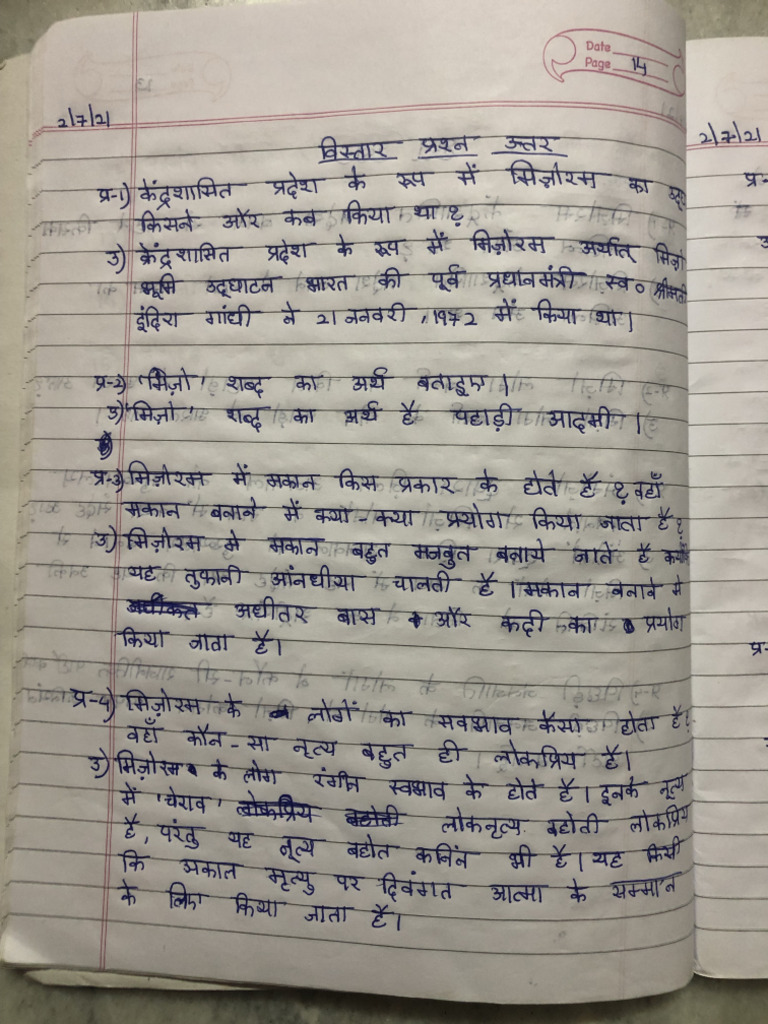 Date
Page 14
2/7/21
2/7/21
विस्तार प्रश्न उत्तर
प्र-1) केंद्रशासित प्रदेश के रूप में मिज़ोरम का
किसने और कब किया था?
उ) केंद्रशासित प्रदेश के रूप में मिज़ोरम अर्थात् मिज़ो
भूमि उद्घाटन भारत की पूर्व प्रधानमंत्री स्व० श्रीमती
इंदिरा गांधी ने 21 जनवरी, 1972 में किया था।
प्र-2) 'मिज़ो' शब्द का अर्थ बताइए।
उ) 'मिज़ो' शब्द का अर्थ है पहाड़ी आदमी।
प्र-3) मिज़ोरम में मकान किस प्रकार के होते हैं? वहाँ
मकान बनाने में क्या-क्या प्रयोग किया जाता है?
उ) मिज़ोरम मे मकान बहुत मजबुत बनाये जाते है
यह तुफानी आंनधीया चालती है। मकान बनाने मे
अधीतर बास और कदी का प्रयोग
किया जाता है।
प्र-4) मिज़ोरम के लोगों का सवभाव कैसा होता है?
वहाँ कौन-सा नृत्य बहुत ही लोकप्रिय है।
उ) मिज़ोरम के लोग रंगीन स्वभाव के होते है। इनके नृत्य
में 'चेराव' लोकनृत्य बहोती लोकप्रिय
है, परंतु यह नृत्य बहोत कठिन भी है। यह किसी
कि अकाल मृत्यु पर दिवंगत आत्मा के सम्मान
के लिए किया जाता है।